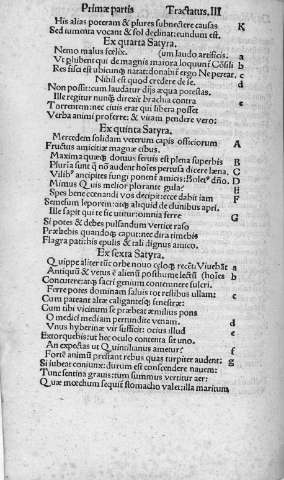 Primæ partis Tractatus. III
His alias poteram & plures subnectere causas K
Sed iumenta vocant & sol declinat: eundum est.
Ex quarta Satyra.
Nemo malus fœlix. cum laudo artificis. a
Vt glubent qui de magnis maiora loquunt b
Res fisci est vbicunq; natat: donabit ergo Ne pereat. c
Nihil est quod credere de se.
Non possit: cum laudatur dijs æqua potestas.
Ille regitur direxit brachia contra e
Torrentem: nec ciuis erat qui libera posset
Verba animi proferre: & vitam pendere vero:
Ex quinta Satyra.
Mercedem solidam veterum capis officiorum A
Fructus amicitiæ magnæ cibus. B
Maxima quæq; domus seruis est plena superbis C
Pluria sunt q non audent hoies pertusa dicere læna. D
Vilib⁹ ancipites fungi ponent amicis: Bolet⁹ dño. E
Mimus Quis melior plorante gula? F
Spes bene cœnandi vos decipit: ecce dabit iam
Semesum leporem: atq; aliquid de clunibus apri.
Ille sapit qui te sic vtitur: omnia ferre G
Si potes & debes: pulsandum vertice raso
Præbebis quandoq; caput: nec dira timebis
Flagra pati: his epulis & tali dignus amico.
Ex sexta Satyra.
Quippe aliter tunc orbe nouo cœloq; recẽti Viuebãt a
Antiquũ & vetus ẽ alienũ posthume lectũ b
Concutere: atq; sacri genium contennere fulcri.
Ferre potes dominam saluis tot restibus vllam: c
Cum pateant altæ caligantesq; fenestræ:
Cum tibi vicinum se præbeat æmilius pons
O medici mediam pertundite venam. d
Vnus hyberinæ vir sufficit: ocius illud e
Extorquebis: vt hec oculo contenta sit vno.
An expectas vt Quintilianus ametur? f
Fortẽ animũ prestant rebus quas turpiter audent: g
Si iubeat coniunx: durum est conscendere nauem:
Tunc sentina grauis: tum summus vertitur aer:
Quæ mœchum sequit stomacho valet: illa maritum